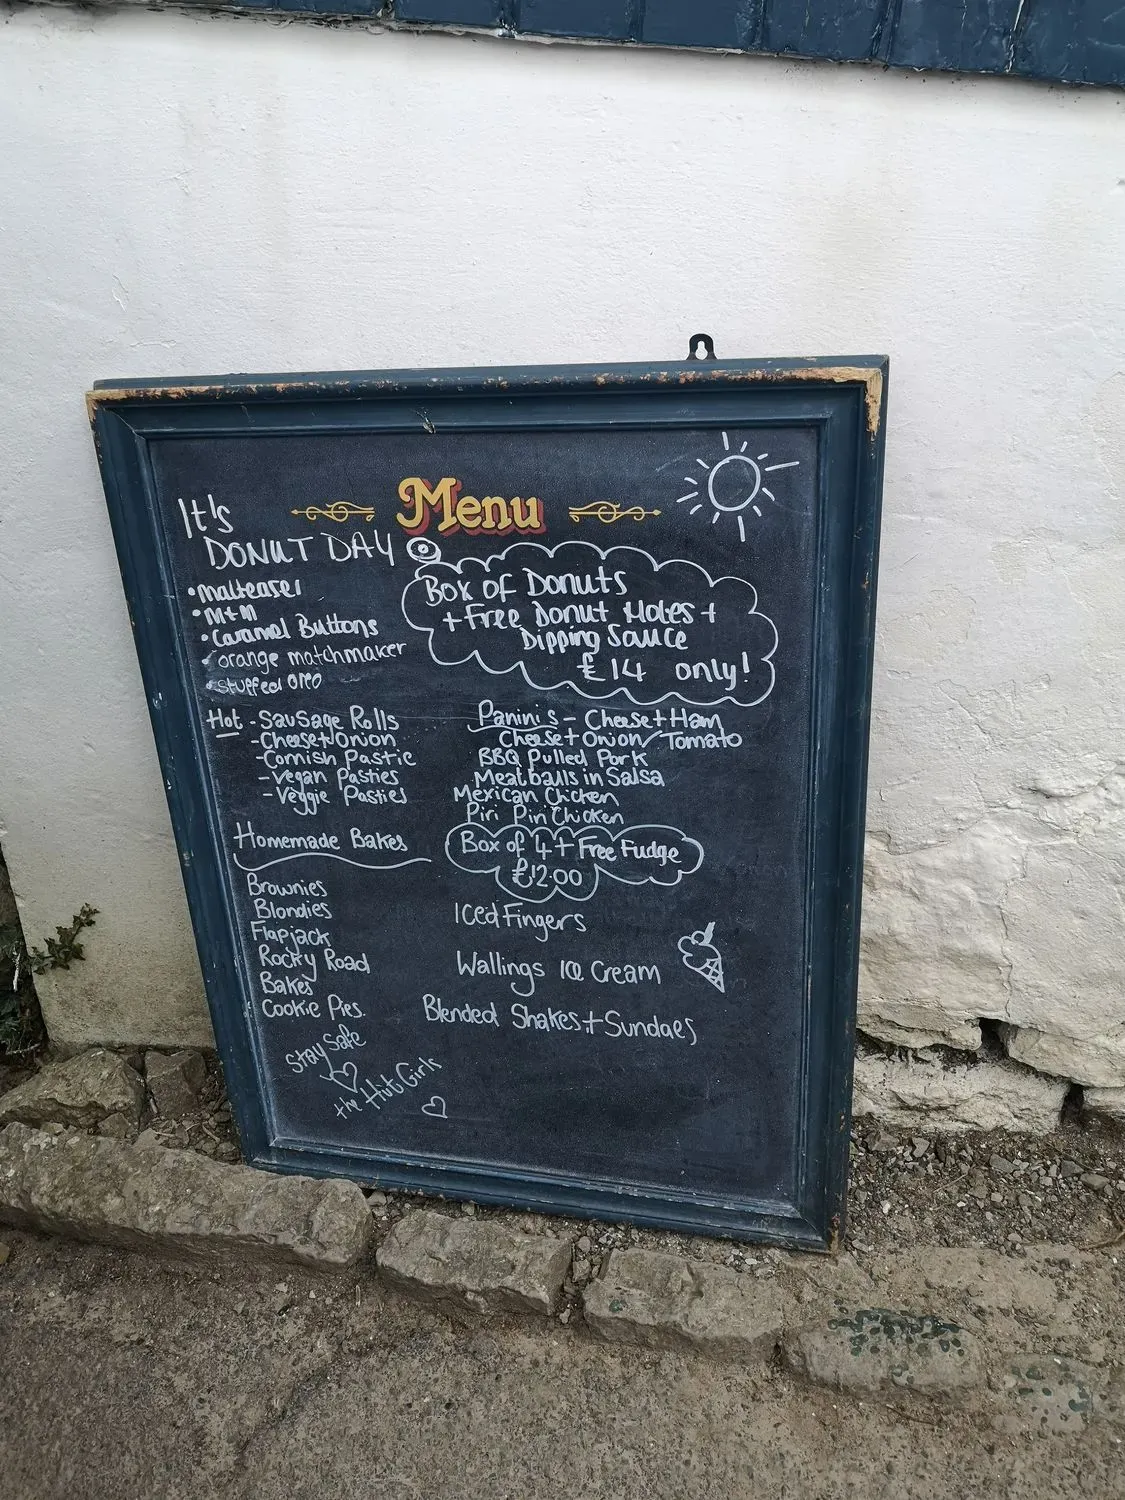 Menu
It's
DONUT DAY
•malteaser
•M+M
•Caramel Buttons
•orange matchmaker
•stuffed oreo
Box of Donuts
+ Free Donut Holes +
Dipping Sauce
£14 only!
Hot - Sausage Rolls
- Cheese+Onion
- Cornish Pastie
- Vegan Pasties
- Veggie Pasties
Panini's - Cheese+Ham
Cheese+Onion/Tomato
BBQ Pulled Pork
Meatballs in Salsa
Mexican Chicken
Piri Piri Chicken
Homemade Bakes
Box of 4 + Free Fudge
£12.00
Brownies
Blondies
Flapjack
Rocky Road
Bakes
Cookie Pies.
Iced Fingers
Wallings Ice Cream
Blended Shakes+Sundaes
Stay Safe
the Hut Girls